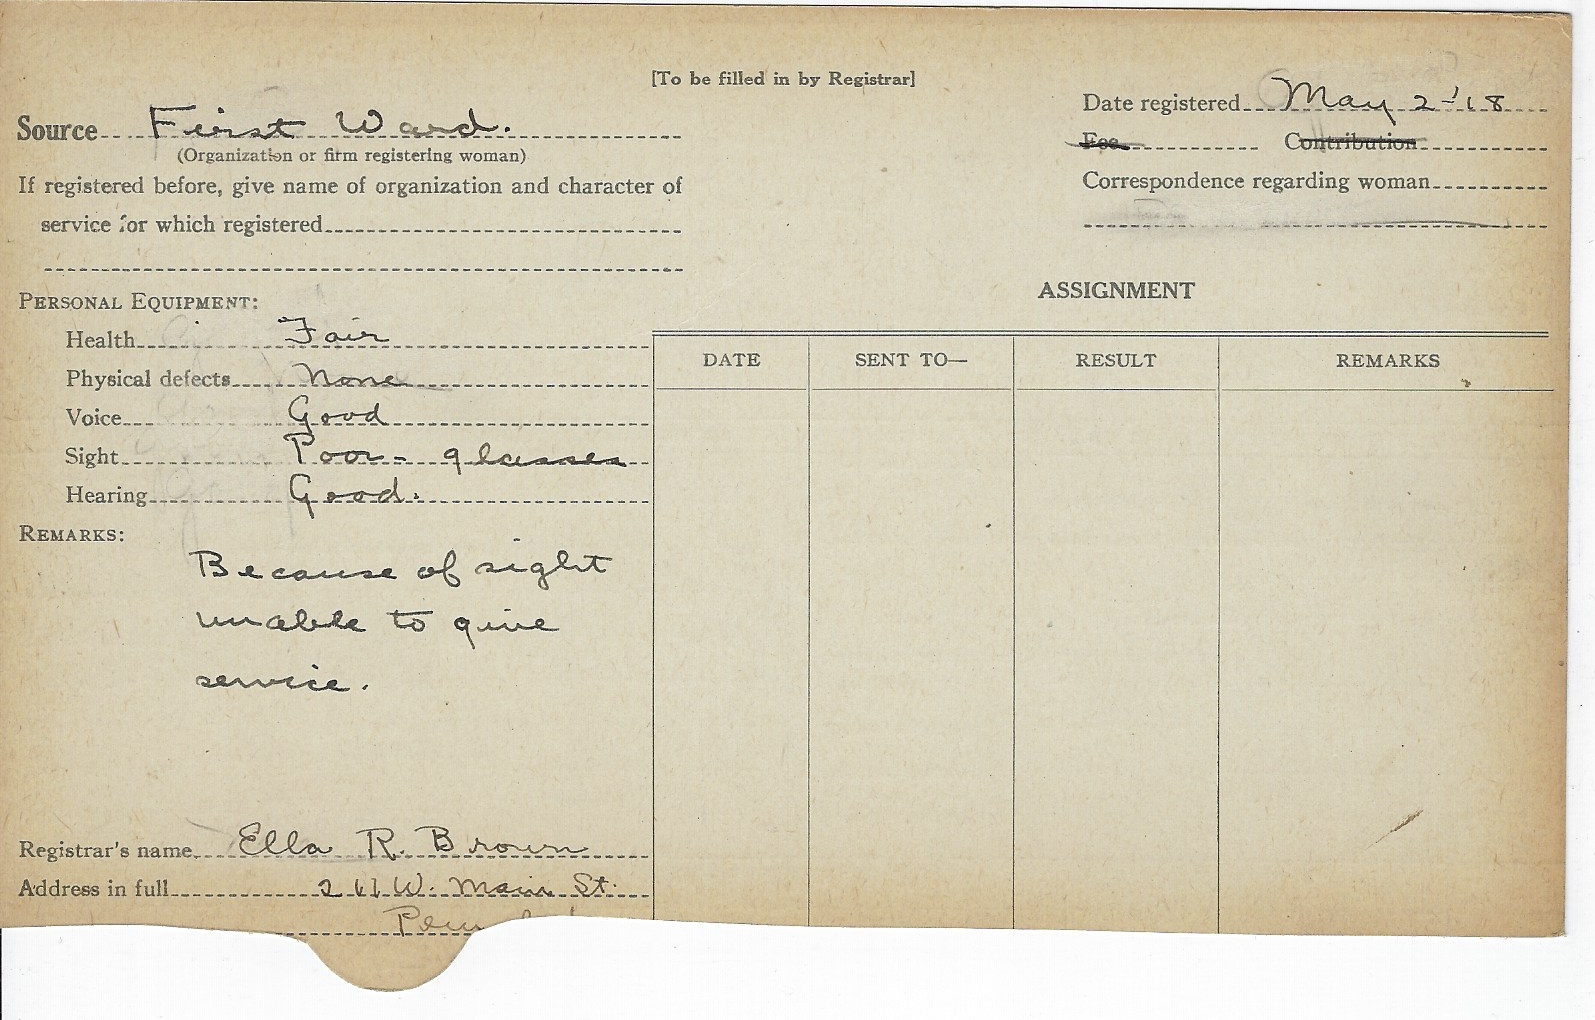 [To be filled in by Registrar]
Source First Ward.
(Organization or firm registering woman)
If registered before, give name of organization and character of
service for which registered
Date registered May 2-'18
Fee Contribution
Correspondence regarding woman
PERSONAL EQUIPMENT:
Health Fair
Physical defects None
Voice Good
Sight Poor - glasses
Hearing Good.
REMARKS:
Because of sight
unable to give
service.
Registrar's name Ella R. Brown
Address in full 261 W. Main St.
ASSIGNMENT
DATE SENT TO— RESULT REMARKS